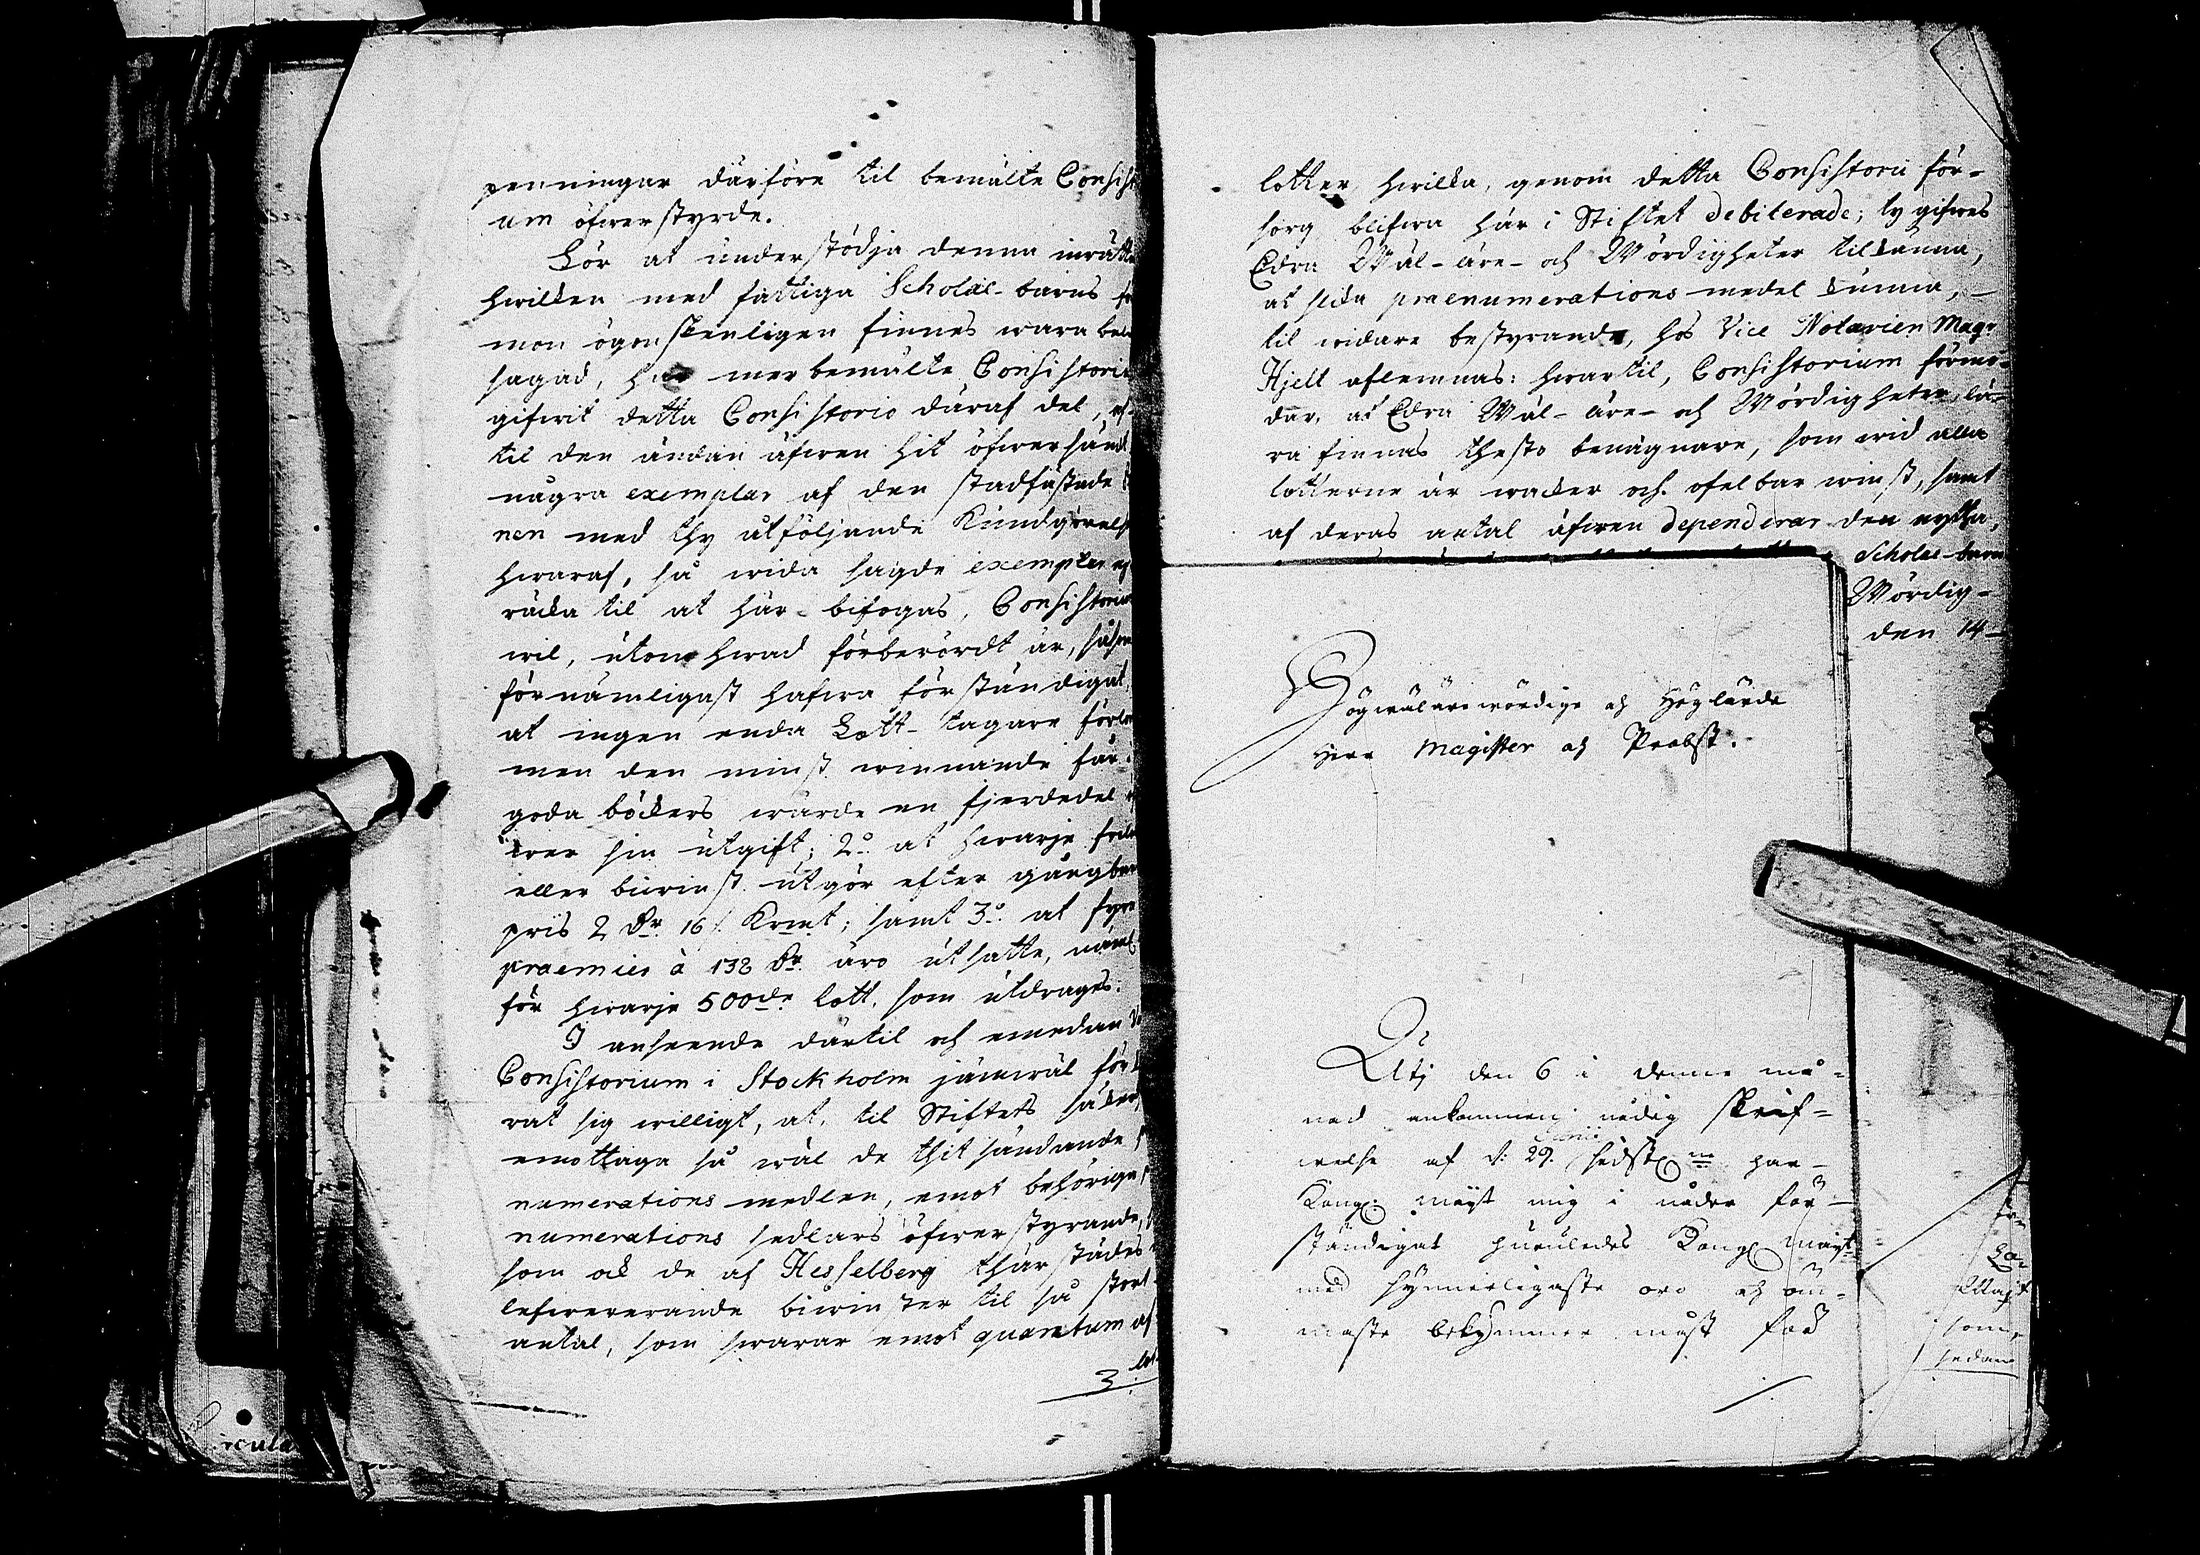 penningar därföre til bemälte Consist
um öfwerstyrde.
För at understödja denna inrätt
hwilken med fattiga Scholæ-barns
mon ögonskenligen finnes wara
sagad, har merbemälte Consistori
gifwit detta Consistorio däraf del,
til den ändan äfwen hit öfwersändt
några exemplar af den stadfästade
nen med thy åtföljande Kundgörelse
hwaraf, så wida sagde exemplar ej
räcka til at här bifogas, Consistorium
wil, utom hwad förberördt är,
förnämligast hafwa förständigat,
at ingen enda Lott-tagare förlo
men den minst winnande får
goda böckers wärde en fjerdedel
wer sin utgift; 2:o at hwarje
eller biwinst utgör efter gångbar
pris 2 Dr. 16 /. Kr:mt; samt 3:o at fyra
praemier à 138 Dr. äro utsatte, näml
för hwarje 500:de lott, som utdrages.
I anseende därtil och emedan
Consistorium i Stockholm jämwäl förkla
rat sig willigt, at, til Stiftets säker
emottaga så wäl de thit sändande
numerations medlen, emot behörige
numerations sedlars öfwerstyrande,
som ock de af Hesselberg thär städes
lefwererande biwinster til så stort
antal, som swarar emot quantum af
3. lot
lotter hwilka, genom detta Consistorii för-
sorg blifwa här i Stiftet debiterade; ty gifwes
Edra Wäl-äre- och Wördigheter tilkänna,
at slika praenumerations-medel kunna,
til widare bestyrande, hos Vice Notarien Mag:r
Hjelt aflemnas: hwartil, Consistorium förmo-
dar, at Edra Wäl-äre- och Wördigheter lä-
ra finnas thesto benägnare, som wid alla
lotterne är wacker och ofelbar winst, samt
af deras antal äfwen dependerar den nytta,
Scholæ-barn
Wördig-
den 14
Högwäl ärewördige och Höglärde
Herr Magister och Probst.
Uti den 6 i denne må-
nad ankommen nådig skrif-
welse af d: 29. Junii sidstl:ne har
Kongl. Mayt mig i nåder för-
ständigat hurule­des Kongl Mayt
med hjerteligaste oro och öm-
maste bekymmer måst
Mayt
som
sedan